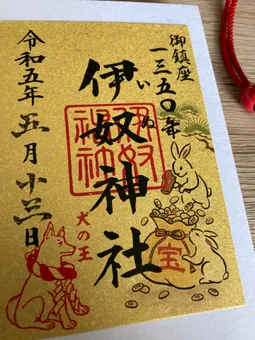 御鎮座
一三五〇年
伊奴神社
いぬ
伊奴神社
犬の王
宝
令和五年五月十三日